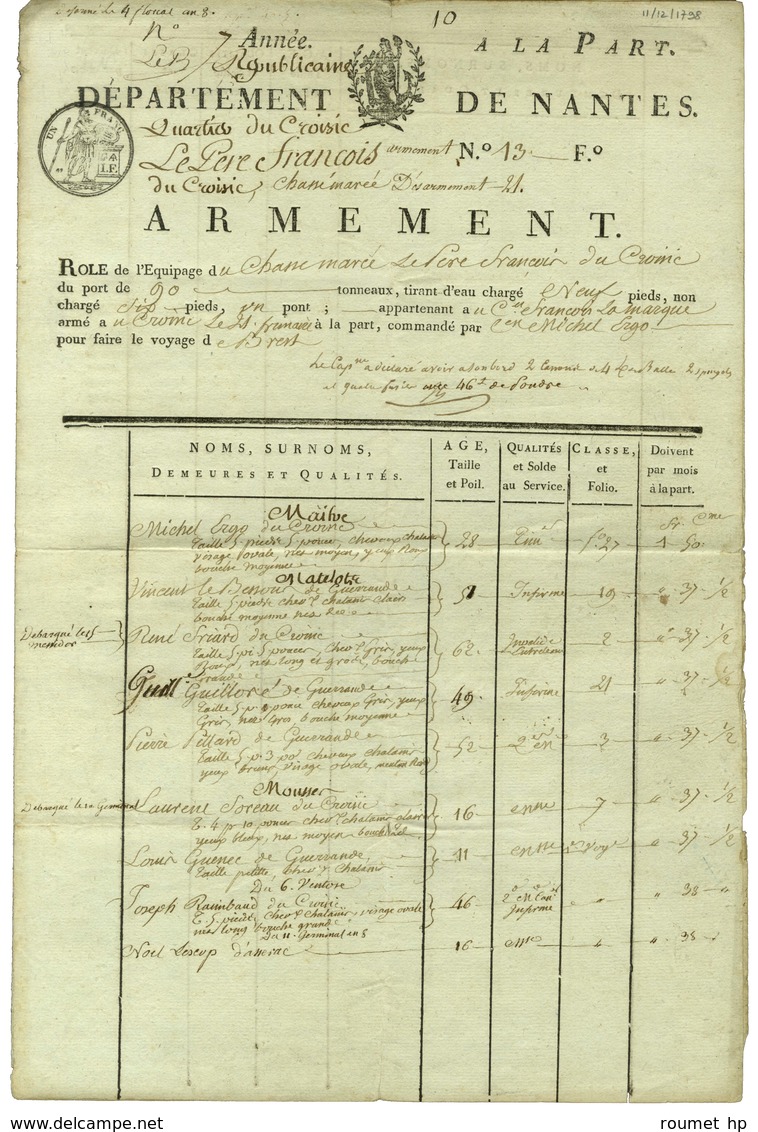 10
11/12/1798
N.º
7 Année.
Républicaine
A LA PART.
DÉPARTEMENT DE NANTES.
UN FRANC
I.F.
Quartier du Croisic
Le Pere François armement N.º 13 F.º
du Croisic, Chassemarée Désarmement 21.
ARMEMENT.
ROLE de l'Equipage du Chassemarée Le Pere François du Croisic
du port de 90 tonneaux, tirant d'eau chargé Neuf pieds, non
chargé Six pieds, un pont ; appartenant a u C.en François Lamarque
armé a u Croisic Le 21 frimaire à la part, commandé par C.en Michel Ergo
pour faire le voyage d e Brest
Le Cap.ne a déclaré avoir a son bord 2 Canons de 4 de Balle 2
et quatre fusils 46 de Poudre
NOMS, SURNOMS,
DEMEURES ET QUALITÉS.
AGE,
Taille
et Poil.
QUALITÉS
et Solde
au Service.
CLASSE,
et
Folio.
Doivent
par mois
à la part.
Maître
Michel Ergo du Croisic 28 f.º 27 1 50
Taille 5 pieds 5 pouces, cheveux chatains
visage ovale, nez moyen, yeux Roux
bouche moyenne
Matelots
Vincent Le Benour de Guerrande 51 Infirme 19 " 37 1/2
Taille 5 pieds chev.x chatains clairs
bouche moyenne nez
Debarqué le 15
messidor
René Friard du Croisic 62 Invalide 2 " 37 1/2
Taille 5 pi 5 pouces, chev.x Gris, yeux
Roux, nez long et gros, bouche
Grande
Guill.e Guilloré de Guerrande 49 Infirme 21 " 37 1/2
Taille 5 p 2 pouces cheveux Gris, yeux
Gris, nez Gros, bouche moyenne
Pierre Pillard de Guerrande 52 3 " 37 1/2
Taille 5 p 3 po cheveux chatains
yeux bruns, visage ovale, menton Rond
Mousses
Debarqué le 11 Germinal
Laurent Soreau du Croisic 16 7 " 37 1/2
T. 4 p 10 pouces chev.x chatains clairs
yeux bleus, nez moyen bouche
Louis Guenec de Guerrande 11 " 37 1/2
Taille petite, chev.x chatains
Du 6 Ventose
Joseph Raimbaud du Croisic 46 Infirme " " 38 "
T. 5 pieds, chev.x Chatains, visage ovale
nez long bouche grande
Du 11 Germinal an 8
Noel Lescop d'asserac 16 " " 38
roumet hp